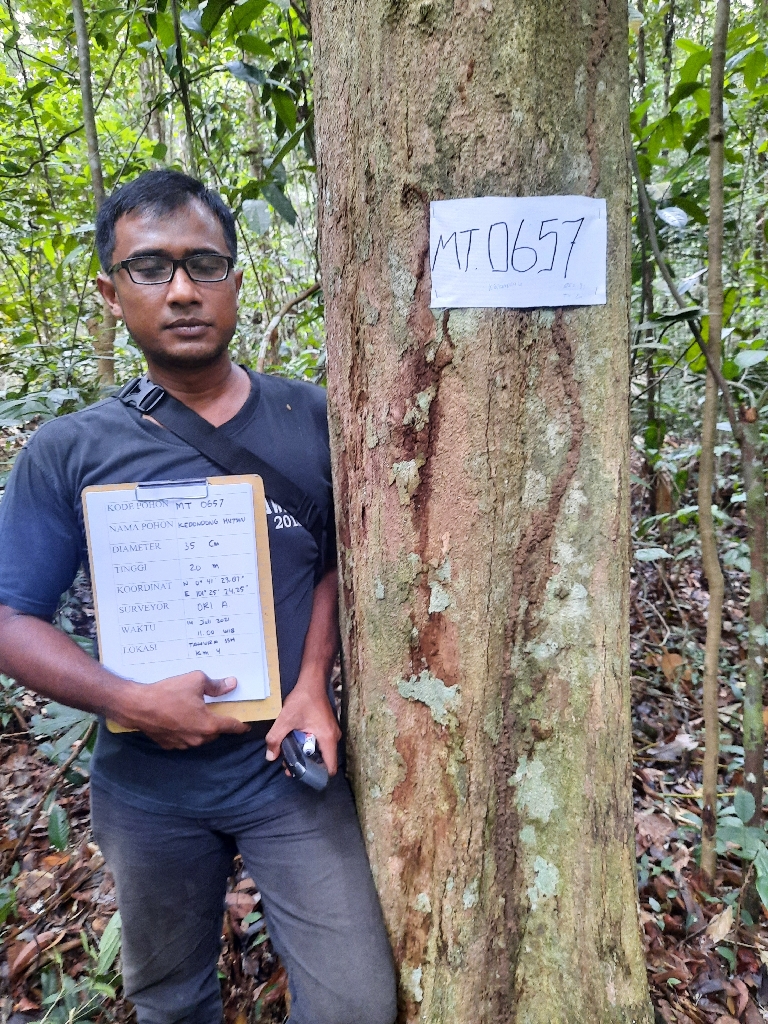 MT. 0657
KODE POHON MT 0657
NAMA POHON KEDONDONG HUTAN
DIAMETER 35 Cm
TINGGI 20 m
KOORDINAT N 0° 41' 23.87"
E 101° 25' 24.25"
SURVEYOR ORI A
WAKTU 14 Juli 2021
11.00 WIB
LOKASI TAHURA SSH
KM 4